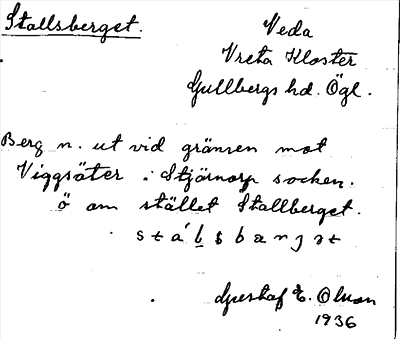 Stallsberget.
Veda
Vreta Kloster
Gullbergs hd. Ögl.
Berg n. ut vid gränsen mot
Viggsäter i Stjärnorp socken.
ö om stället Stallberget.
Gustaf E. Olson
1936